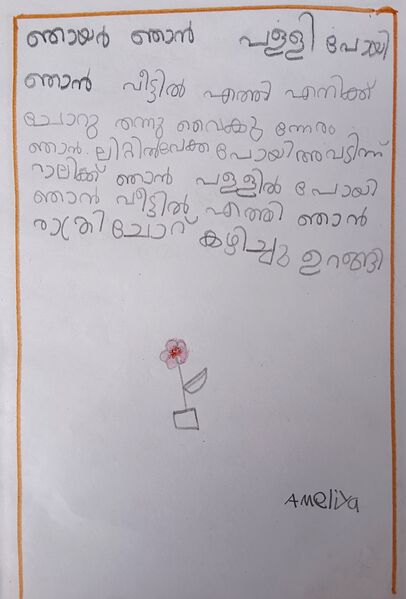 ഞായർ ഞാൻ പള്ളി പോയി
ഞാൻ വീട്ടിൽ എത്തി എനിക്ക്
ചോറു തന്നു വൈകു ന്നേരം
ഞാൻ ലിറ്റിൽവേക്ക പോയിഅവടിന്ന്
റാലിക്ക് ഞാൻ പള്ളിൽ പോയി
ഞാൻ വീട്ടിൽ എത്തി ഞാൻ
രാത്രി ചോറ് കഴിച്ചു ഉറങ്ങി
Ameliya